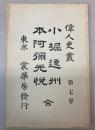 偉人史叢
第七卷
小堀遠州
本阿彌光悦
合
東京 裳華房發行